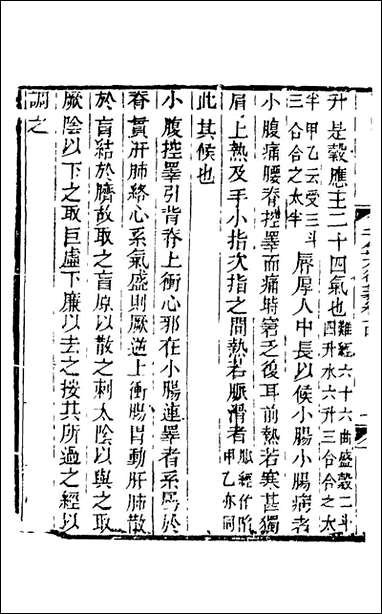 升是穀應主二十四氣也難經六十六曲盛穀二斗四升水六升三合合之太
半甲乙云受三斗三合合之太半脣厚人中長以候小腸小腸病者
小腹痛腰脊控睪而痛時窘之復耳前熱若寒甚獨
肩上熱及手小指次指之間熱若脈滑者脈經作陷甲乙亦同
此其候也
小腹控睪引背脊上衝心邪在小腸連睪者系屬於
脊貫肝肺絡心系氣盛則厥逆上衝腸胃動肝肺散
於肓結於臍故取之肓原以散之刺太陰以與之取
厥陰以下之取巨虛下廉以去之按其所過之經以
調之